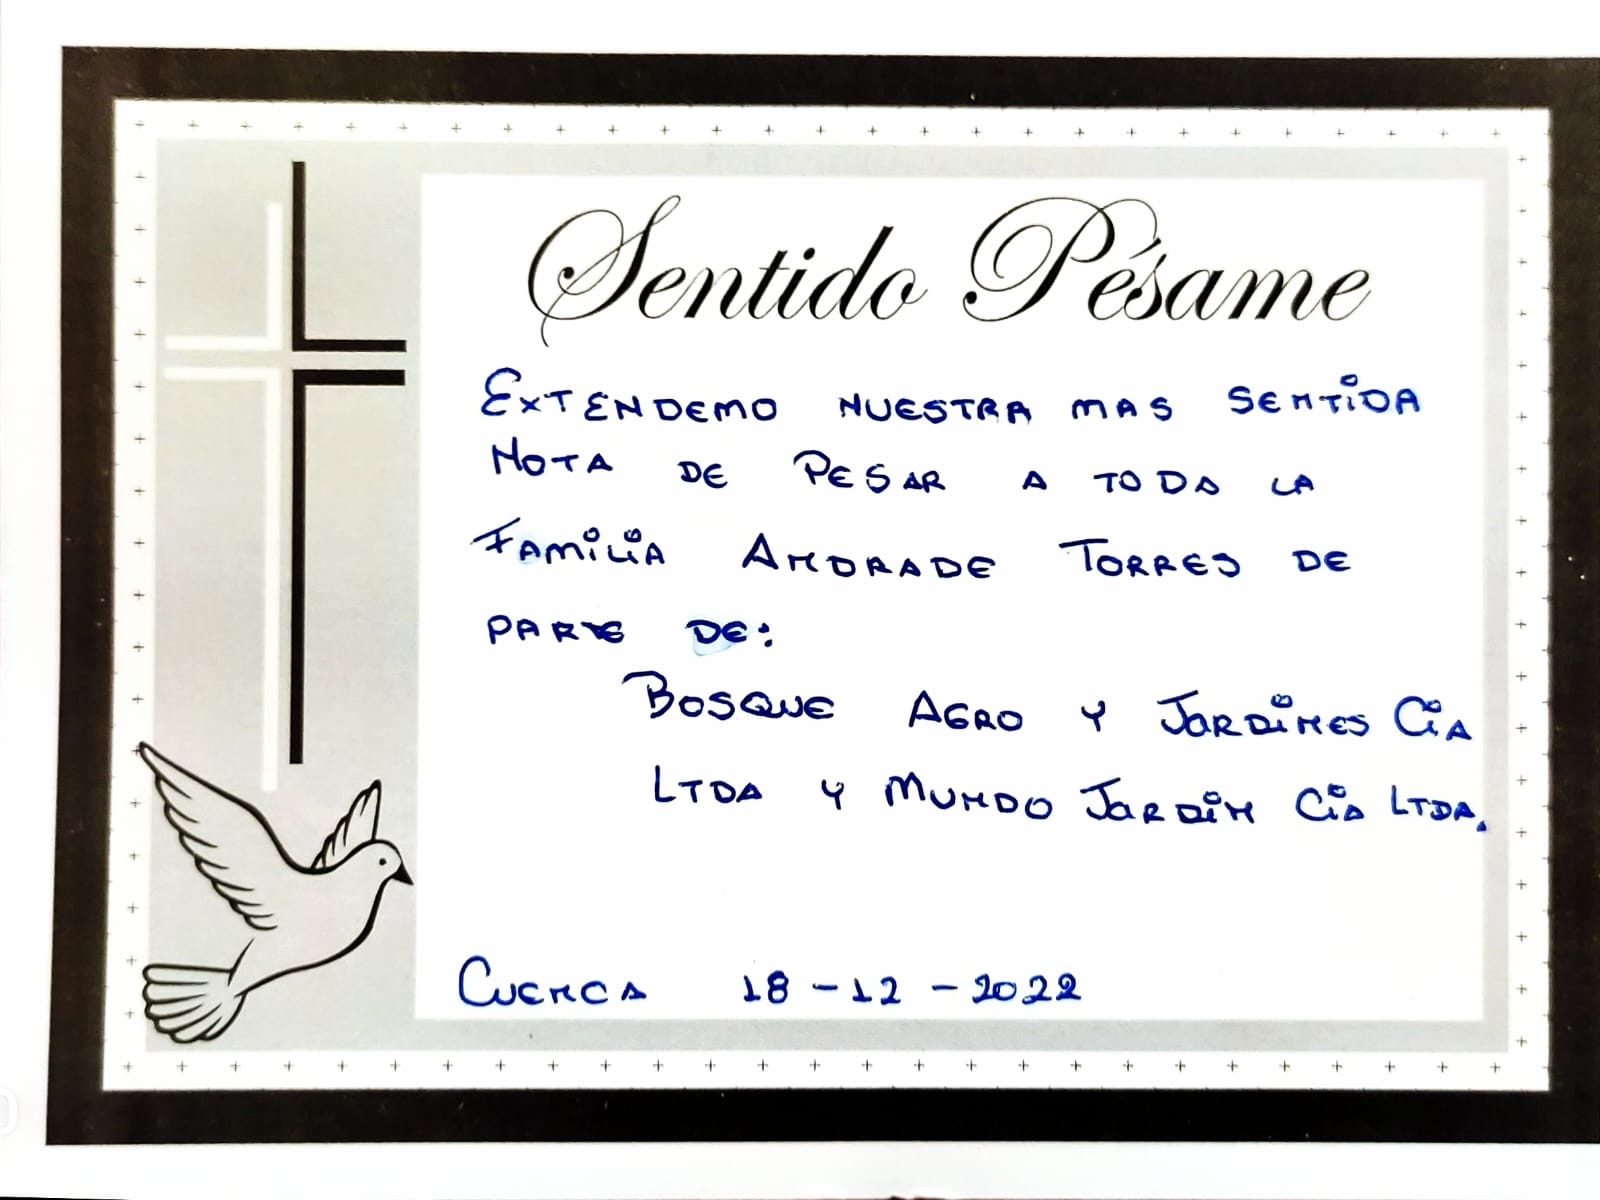 Sentido Pésame
EXTENDEMO NUESTRA MAS SENTIDA
NOTA DE PESAR A TODA LA
FAMILIA ANDRADE TORRES DE
PARTE DE:
BOSQUE AGRO Y JARDINES CIA
LTDA Y MUNDO JARDIN CIA LTDA.
CUENCA 18-12-2022